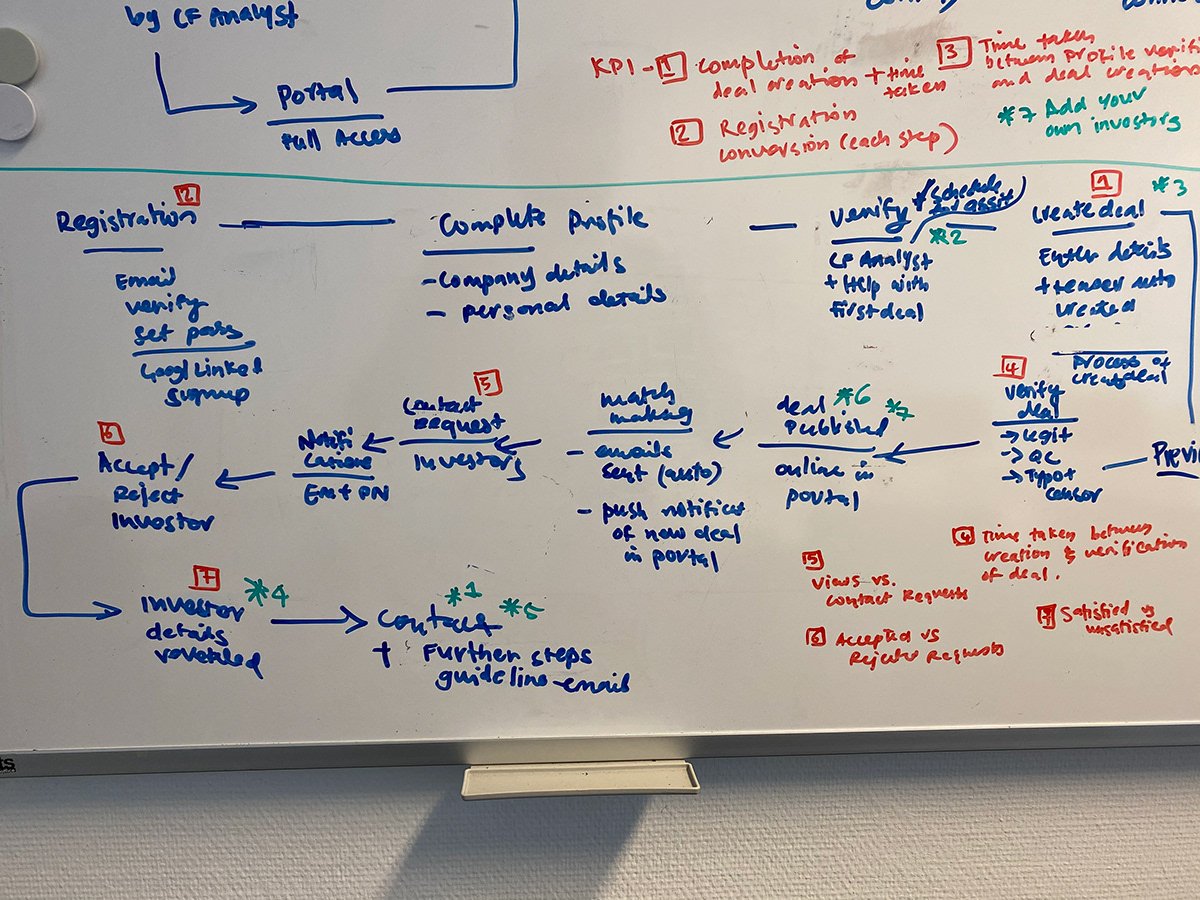 by CF Analyst
Portal
Full Access
KPI - 1 Completion of
deal creation + time
taken
2 Registration
conversion (each step)
3 Time taken
between profile verifi
and deal creation
*7 Add your
own investors
2
Registration
Email
verify
set pass
Googl Linked
signup
Complete Profile
- Company details
- personal details
Verify
*2
CF Analyst
+ Help with
first deal
1
*3
Create deal
Enter details
+ teaser auto
created
process of
create deal
Previ
4
Verify
deal
→ Legit
→ QC
→ Typo +
censor
deal *6
Published *7
online in
portal
match
making
- emails
sent (auto)
- push notificat
of new deal
in portal
5
Contact
Request
Investors
Notifi
cations
Em + PN
6
Accept /
Reject
Investor
7
*4
Investor
details
revealed
*1
*5
Contact
+ Further steps
guideline - email
4 Time taken between
creation & verification
of deal.
5
Views vs.
Contact Requests
6 Accepted vs
Rejected Requests
7 Satisfied vs
unsatisfied